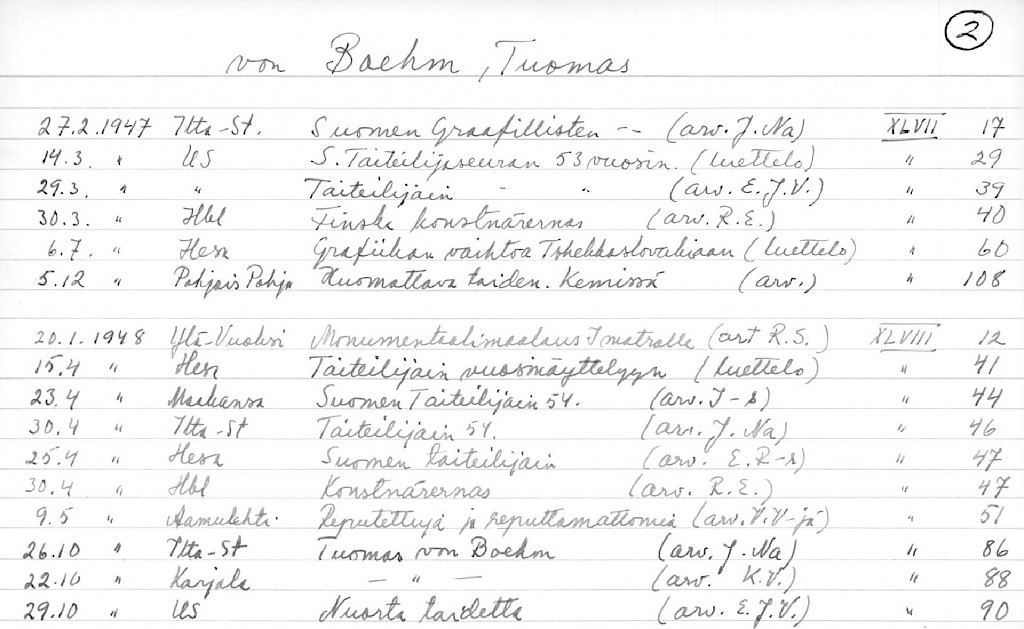 2
von Boehm, Tuomas
27.2.1947 Ilta-St. Suomen Graafillisten -- (arv. J. Na) XLVII 17
14.3. " US S. Taiteilijaseuran 53 vuosin. (luettelo) " 29
29.3. " " Taiteilijain - " (arv. E. J. V.) " 39
30.3. " Hbl Finska konstnärernas (arv. R. E.) " 40
6.7. " Hesa Grafiikan vaihtoa Tshekkoslovakiaan (luettelo) " 60
5.12 " Pohjois Pohja Huomattava taiden. Kemissä (arv.) " 108
20.1.1948 Ylä-Vuoksi Monumentaalimaalaus Imatralle (art R. S.) XLVIII 12
15.4 " Hesa Taiteilijain vuosinäyttelyyn (luettelo) " 41
23.4 " Maakansa Suomen Taiteilijain 54. (arv. I-s) " 44
30.4 " Ilta-St Taiteilijain 54. (arv. J. Na) " 46
25.4 " Hesa Suomen taiteilijain (arv. E. R-s) " 47
30.4 " Hbl Konstnärernas (arv. R. E.) " 47
9.5 " Aamulehti Reputettuja ja reputtamattomia (arv. V. V-jä) " 51
26.10 " Ilta-St Tuomas von Boehm (arv. J. Na) " 86
22.10 " Karjala — " — (arv. K. V.) " 88
29.10 " US Nuorta taidetta (arv. E. J. V.) " 90